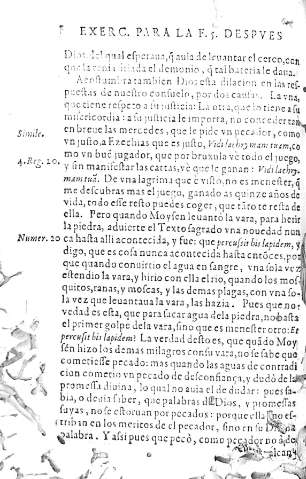 EXERC. PARA LA F. 5. DESPVES
Dios, del qual esperaua, q̃ auia de leuantar el cerco, con
que la tenia sitiada el demonio, q̃ tal bateria le daua.
Acostumbra tambien Dios esta dilacion en las res-
puestas de nuestro consuelo, por dos causas. La vna,
que tiene respeto a su justicia: La otra, que lo tiene a su
misericordia: a su justicia le importa, no conceder tan
en breue las mercedes, que le pide vn pecador, como
Simile.
vn justo, a Ezechias que es justo, Vidi lachrymam tuam, co
4. Reg. 20.
mo vn buẽ jugador, que por bruxula vè todo el juego,
y sin manifestar las cartas, vè que le ganan: Vidi lachry-
mam tuã. De vna lagrima que è visto, no es menester, q̃
me descubras mas el juego, ganado as quinze años de
vida, todo esse resto puedes coger, que tãto te resta de
ella. Pero quando Moysen leuantò la vara, para herir
la piedra, aduierte el Texto sagrado vna nouedad nun
Numer. 20
ca hasta alli acontecida, y fue: que percussit bis lapidem, y
digo, que es cosa nunca acontecida hasta entõces, por
que quando conuirtio el agua en sangre, vna sola vez
estendio la vara, y hirio con ella el rio, quando los mos
quitos, ranas, y moscas, y las demas plagas, con vna so-
la vez que leuantaua la vara, las hazia. Pues que no-
vedad es esta, que para sacar agua de la piedra, no basta
el primer golpe de la vara, sino que es menester otro: Et
percussit bis lapidem? La verdad desto es, que quãdo Moy
sen hizo los demas milagros con su vara, no se sabe que
cometiesse pecado: mas quando las aguas de contradi
cion cometio vn pecado de desconfiança, y dudò de la
promessa diuina, lo qual no auia el de dudar: pues sa-
bia, o deuia saber, que palabras de Dios, y promessas
suyas, no se estoruan por pecados: porque ella no es-
triban en los meritos del pecador, sino en su
palabra. Y assi pues que pecò, como pecador no à de
alcan